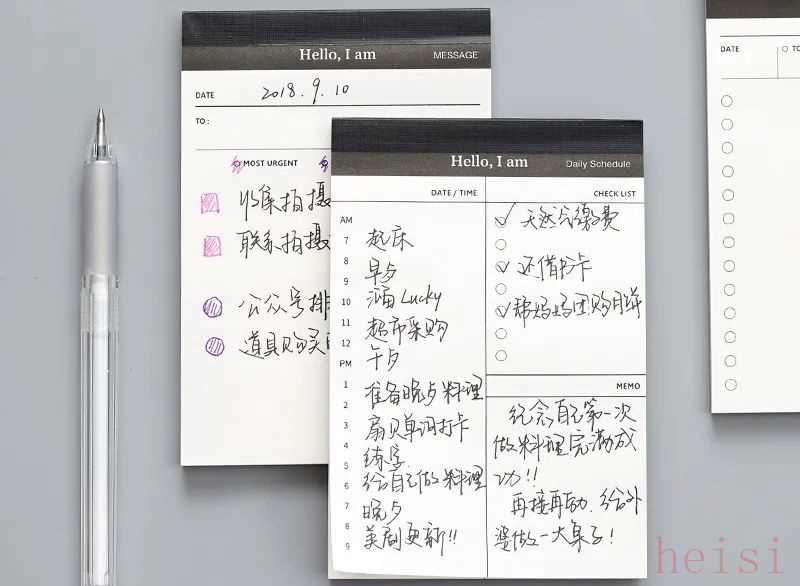 Hello, I am
MESSAGE
DATE
2018.9.10
TO:
MOST URGENT
收集拍摄
联系拍摄
公众号排
道具购买
Hello, I am
Daily Schedule
DATE / TIME
AM
7 起床
8
9 早夕
10 Lucky
11 超市采购
12 午夕
PM
1 准备晚夕料理
2
3 扇贝单词打卡
4
5 练字
6 给自己做料理
7 晚夕
8 美剧更新!!
9
CHECK LIST
天然气缴费
还借书卡
帮妈妈团购月饼
MEMO
纪念自己第一次
做料理完满成
功!!
再接再励.给外
婆做一大桌子!
DATE
TO
heisi